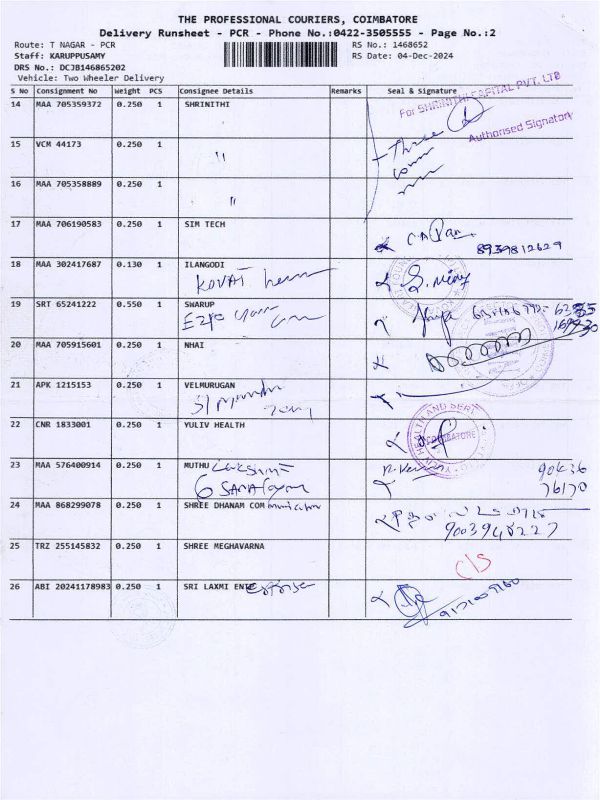 THE PROFESSIONAL COURIERS, COIMBATORE
Delivery Runsheet - PCR - Phone No.:0422-3505555 - Page No.:2
Route: T NAGAR - PCR RS No.: 1468652
Staff: KARUPPUSAMY RS Date: 04-Dec-2024
DRS No.: DCJB146865202
Vehicle: Two Wheeler Delivery
S No Consignment No Weight PCS Consignee Details Remarks Seal & Signature
For SHRINITHI CAPITAL PVT. LTD
14 MAA 705359372 0.250 1 SHRINITHI
Authorised Signatory
Three
15 VCM 44173 0.250 1 "
16 MAA 705358889 0.250 1 "
17 MAA 706190583 0.250 1 SIM TECH
8939812629
18 MAA 302417687 0.130 1 ILANGODI
KOVAI
19 SRT 65241222 0.550 1 SWARUP
20 MAA 705915601 0.250 1 NHAI
21 APK 1215153 0.250 1 VELMURUGAN
22 CNR 1833001 0.250 1 YULIV HEALTH
HEALTH AND
COIMBATORE
23 MAA 576400914 0.250 1 MUTHU 90636
76170
24 MAA 868299078 0.250 1 SHREE DHANAM COMmunication
9003948227
25 TRZ 255145832 0.250 1 SHREE MEGHAVARNA
C/S
26 ABI 20241178983 0.250 1 SRI LAXMI ENTE